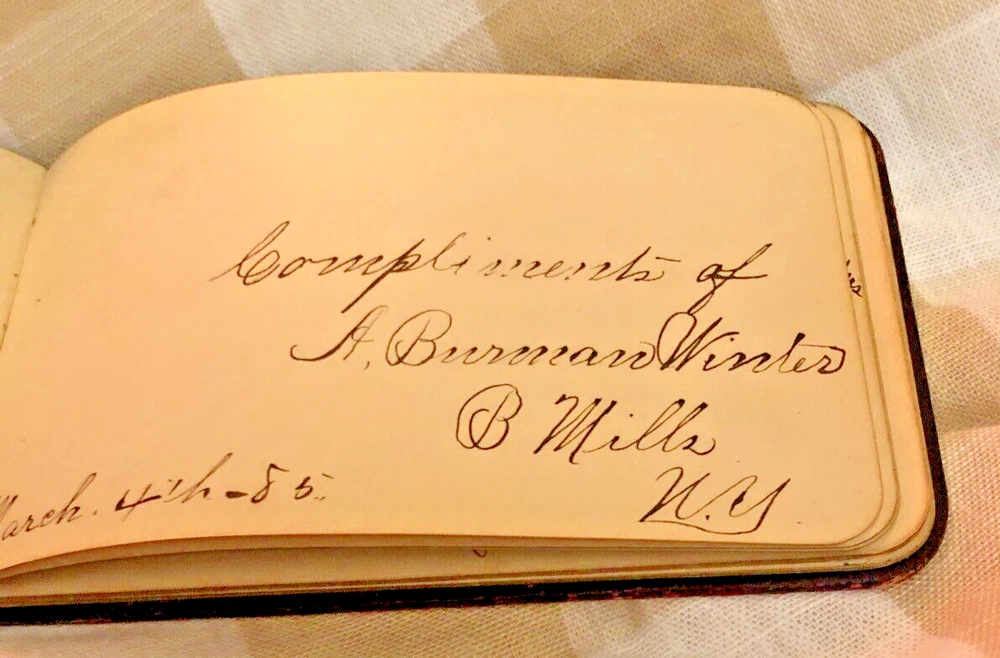 Compliments of
A. Burman Winter
B Mills
N.Y.
March. 4th - 85.